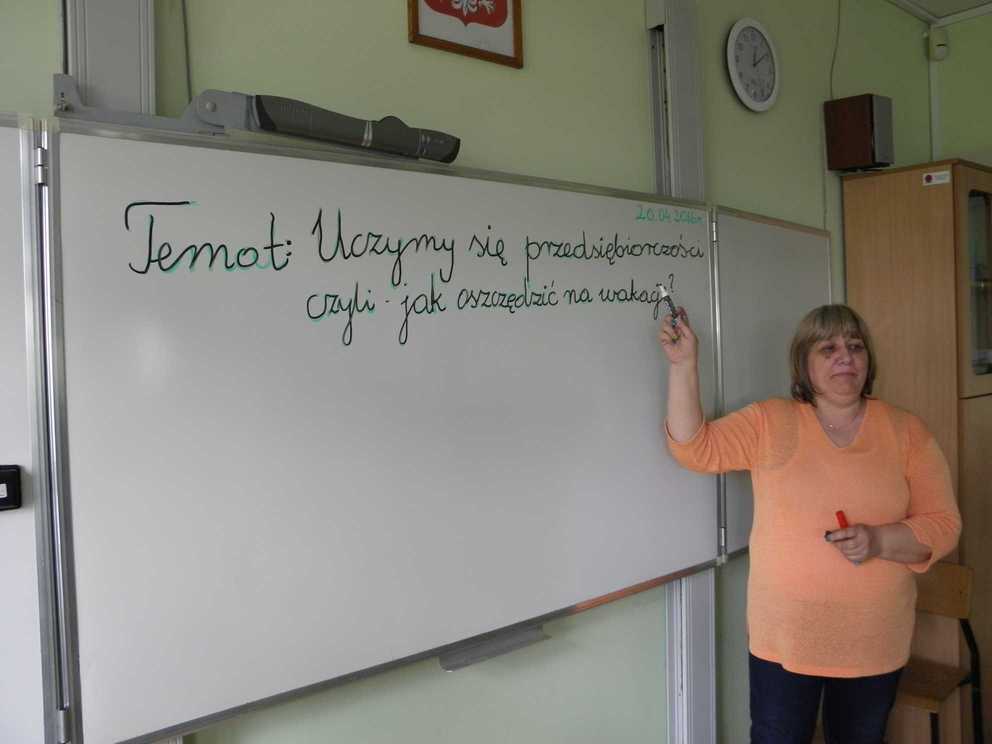 20.04.2016r.
Temat: Uczymy się przedsiębiorczości
czyli - jak oszczędzić na wakacje?